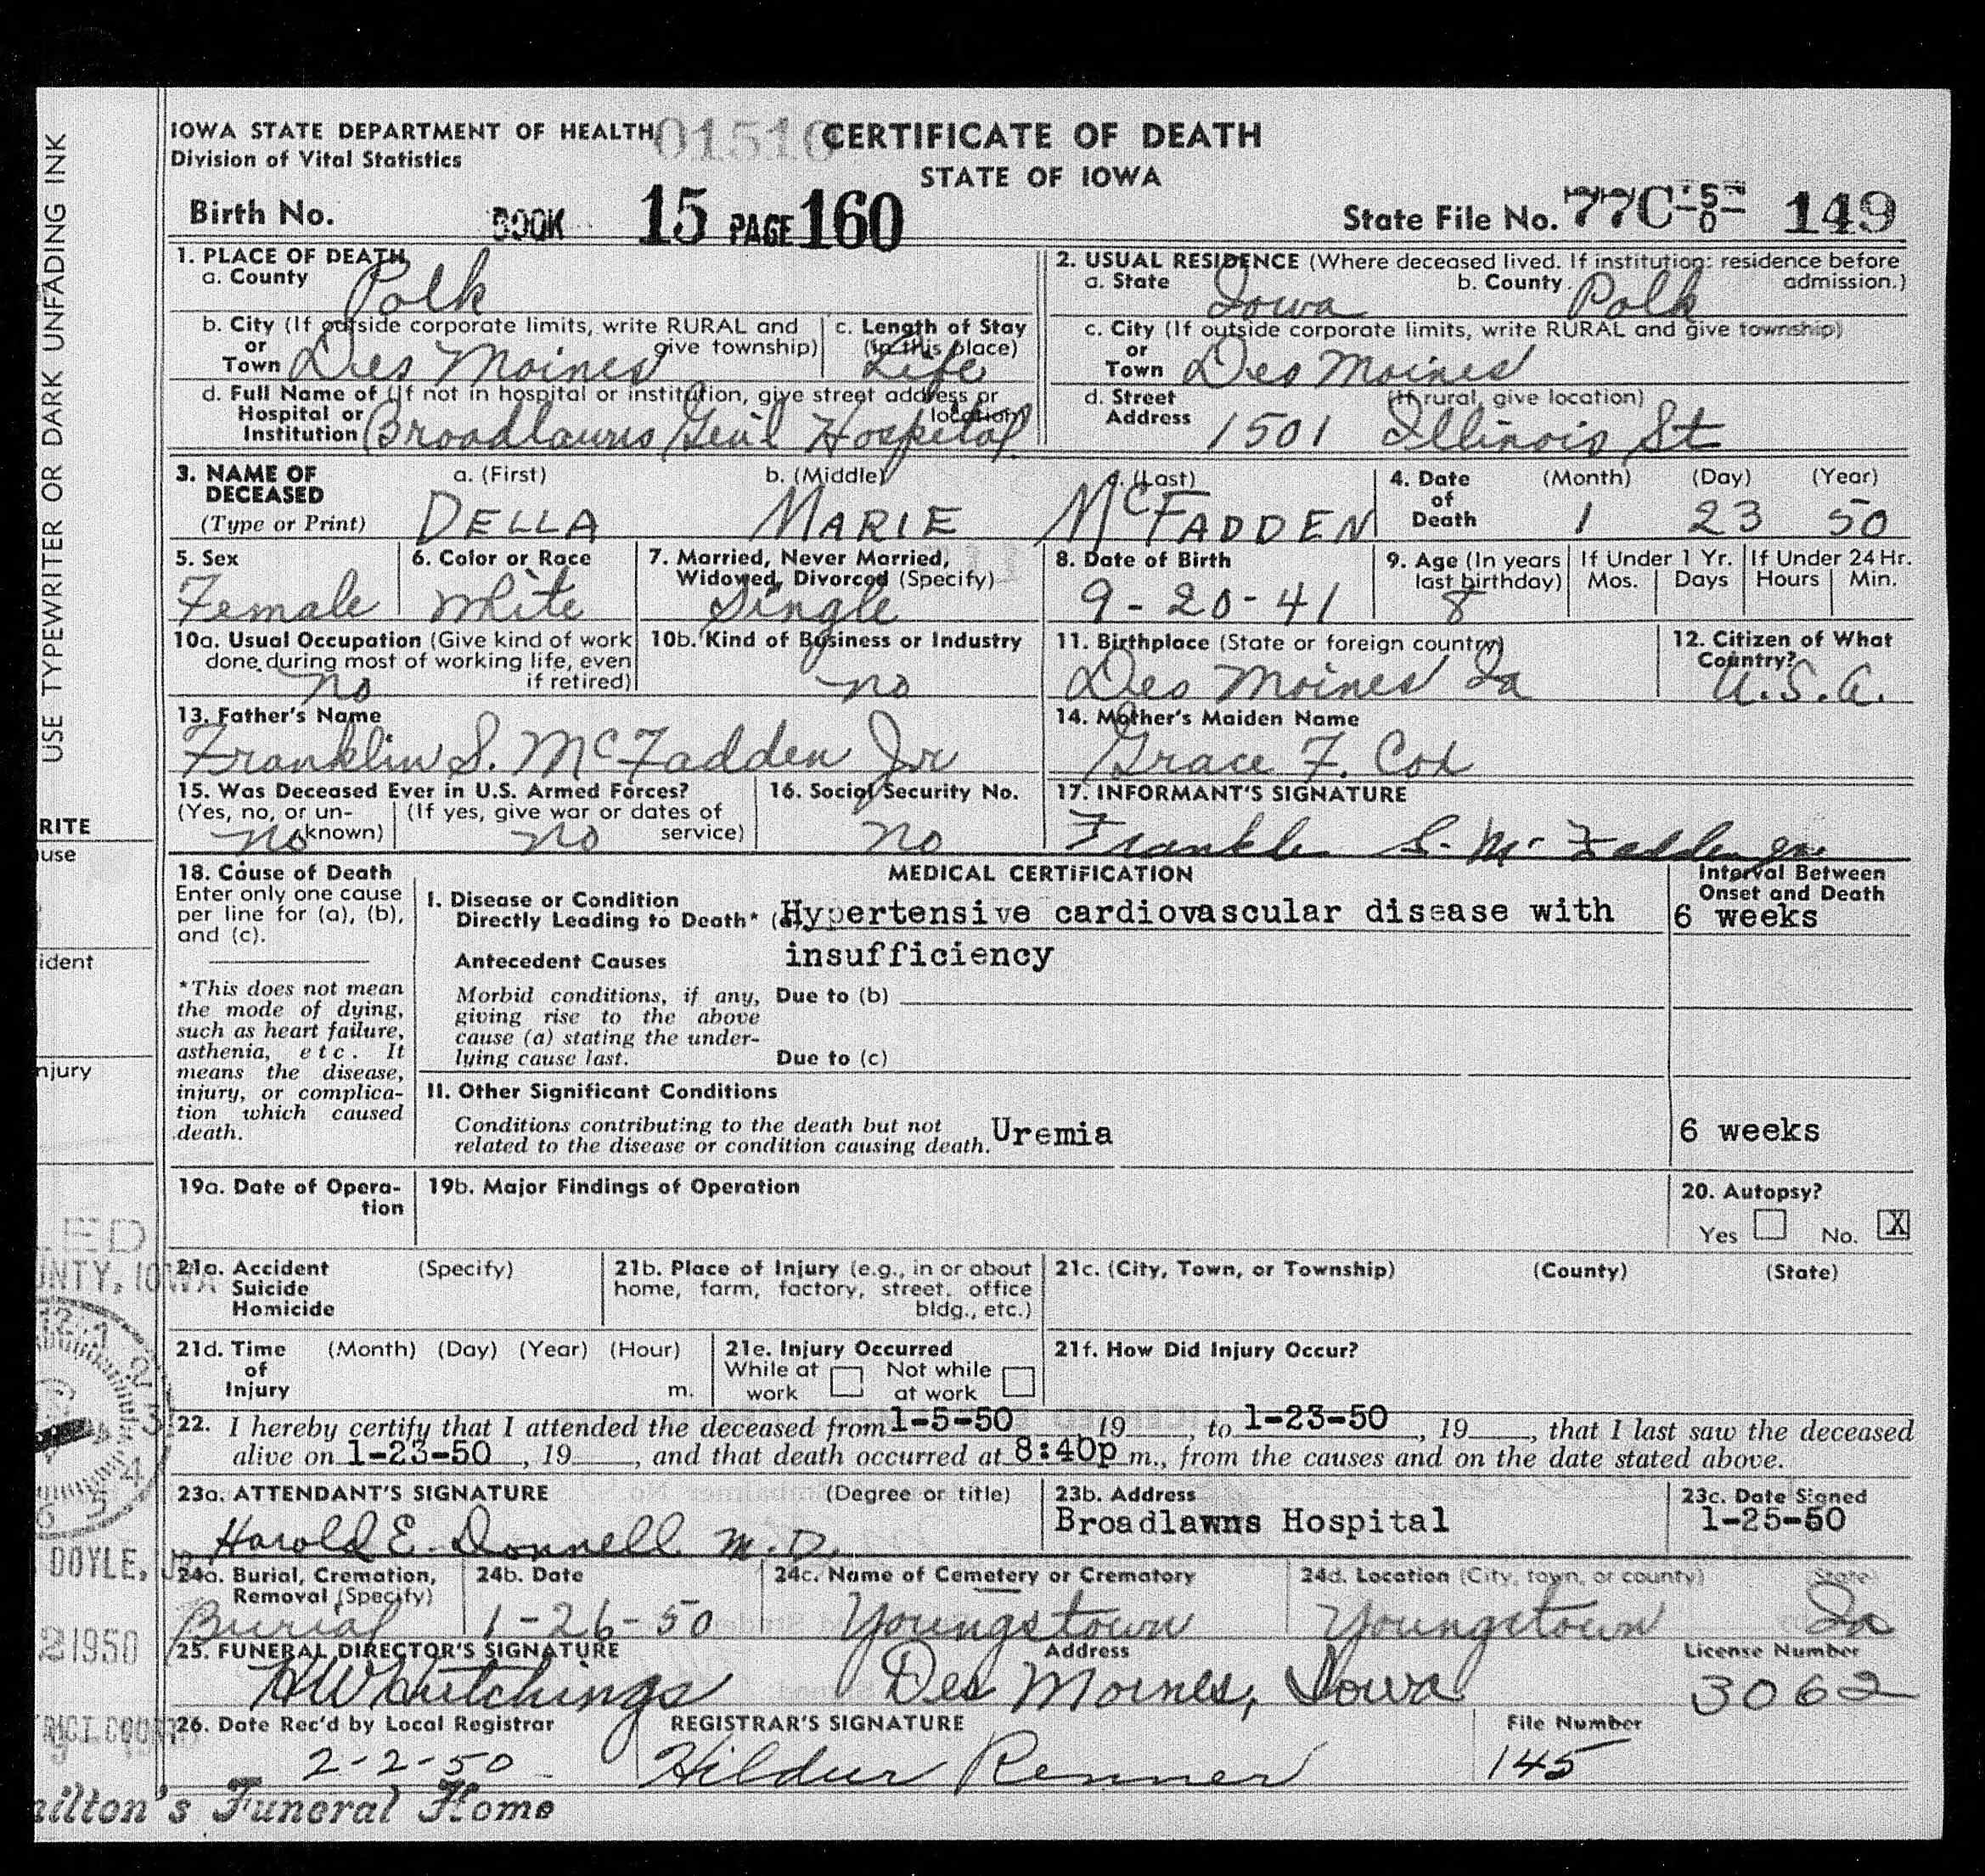 USE TYPEWRITER OR DARK UNFADING INK
RITE
use
ident
njury
ED
UNTY, IOWA
DOYLE, JR
2 1950
RICT COURT
IOWA STATE DEPARTMENT OF HEALTH
Division of Vital Statistics
01516
CERTIFICATE OF DEATH
STATE OF IOWA
Birth No. BOOK 15 PAGE 160
State File No. 77C-50- 149
1. PLACE OF DEATH
a. County Polk
b. City (If outside corporate limits, write RURAL and give township)
or Town Des Moines
c. Length of Stay (in this place)
Life
d. Full Name of (If not in hospital or institution, give street address or location)
Hospital or Institution Broadlawns Gen'l Hospital
2. USUAL RESIDENCE (Where deceased lived. If institution: residence before admission.)
a. State Iowa b. County Polk
c. City (If outside corporate limits, write RURAL and give township)
or Town Des Moines
d. Street Address (If rural, give location)
1501 Illinois St
3. NAME OF DECEASED (Type or Print)
a. (First) DELLA
b. (Middle) MARIE
c. (Last) McFADDEN
4. Date of Death (Month) (Day) (Year)
1 23 50
5. Sex
Female
6. Color or Race
White
7. Married, Never Married, Widowed, Divorced (Specify)
Single
8. Date of Birth
9-20-41
9. Age (In years last birthday)
8
If Under 1 Yr. Mos. Days
If Under 24 Hr. Hours Min.
10a. Usual Occupation (Give kind of work done during most of working life, even if retired)
no
10b. Kind of Business or Industry
no
11. Birthplace (State or foreign country)
Des Moines Ia
12. Citizen of What Country?
U.S.A.
13. Father's Name
Franklin S. McFadden Jr
14. Mother's Maiden Name
Grace F. Cox
15. Was Deceased Ever in U.S. Armed Forces?
(Yes, no, or unknown) no
(If yes, give war or dates of service) no
16. Social Security No.
no
17. INFORMANT'S SIGNATURE
Franklin S. McFadden Jr.
18. Cause of Death
Enter only one cause
per line for (a), (b),
and (c).
*This does not mean
the mode of dying,
such as heart failure,
asthenia, etc. It
means the disease,
injury, or complica-
tion which caused
death.
MEDICAL CERTIFICATION
Interval Between Onset and Death
I. Disease or Condition
Directly Leading to Death* (a) Hypertensive cardiovascular disease with 6 weeks
insufficiency
Antecedent Causes
Morbid conditions, if any,
giving rise to the above
cause (a) stating the under-
lying cause last.
Due to (b)
Due to (c)
II. Other Significant Conditions
Conditions contributing to the death but not
related to the disease or condition causing death. Uremia 6 weeks
19a. Date of Opera-
tion
19b. Major Findings of Operation
20. Autopsy?
Yes No. X
21a. Accident
Suicide
Homicide
(Specify)
21b. Place of Injury (e.g., in or about
home, farm, factory, street, office
bldg., etc.)
21c. (City, Town, or Township) (County) (State)
21d. Time of Injury (Month) (Day) (Year) (Hour) m.
21e. Injury Occurred
While at work Not while at work
21f. How Did Injury Occur?
22. I hereby certify that I attended the deceased from 1-5-50, 19, to 1-23-50, 19, that I last saw the deceased
alive on 1-23-50, 19, and that death occurred at 8:40p m., from the causes and on the date stated above.
23a. ATTENDANT'S SIGNATURE (Degree or title)
Harold E. Donnell M.D.
23b. Address
Broadlawns Hospital
23c. Date Signed
1-25-50
24a. Burial, Cremation, Removal (Specify)
Burial
24b. Date
1-26-50
24c. Name of Cemetery or Crematory
Youngstown
24d. Location (City, town, or county) (State)
Youngstown Ia
25. FUNERAL DIRECTOR'S SIGNATURE Address License Number
HW Hutchings Des Moines, Iowa 3062
26. Date Rec'd by Local Registrar
2-2-50
REGISTRAR'S SIGNATURE
Hildur Renner
File Number
145
ilton's Funeral Home